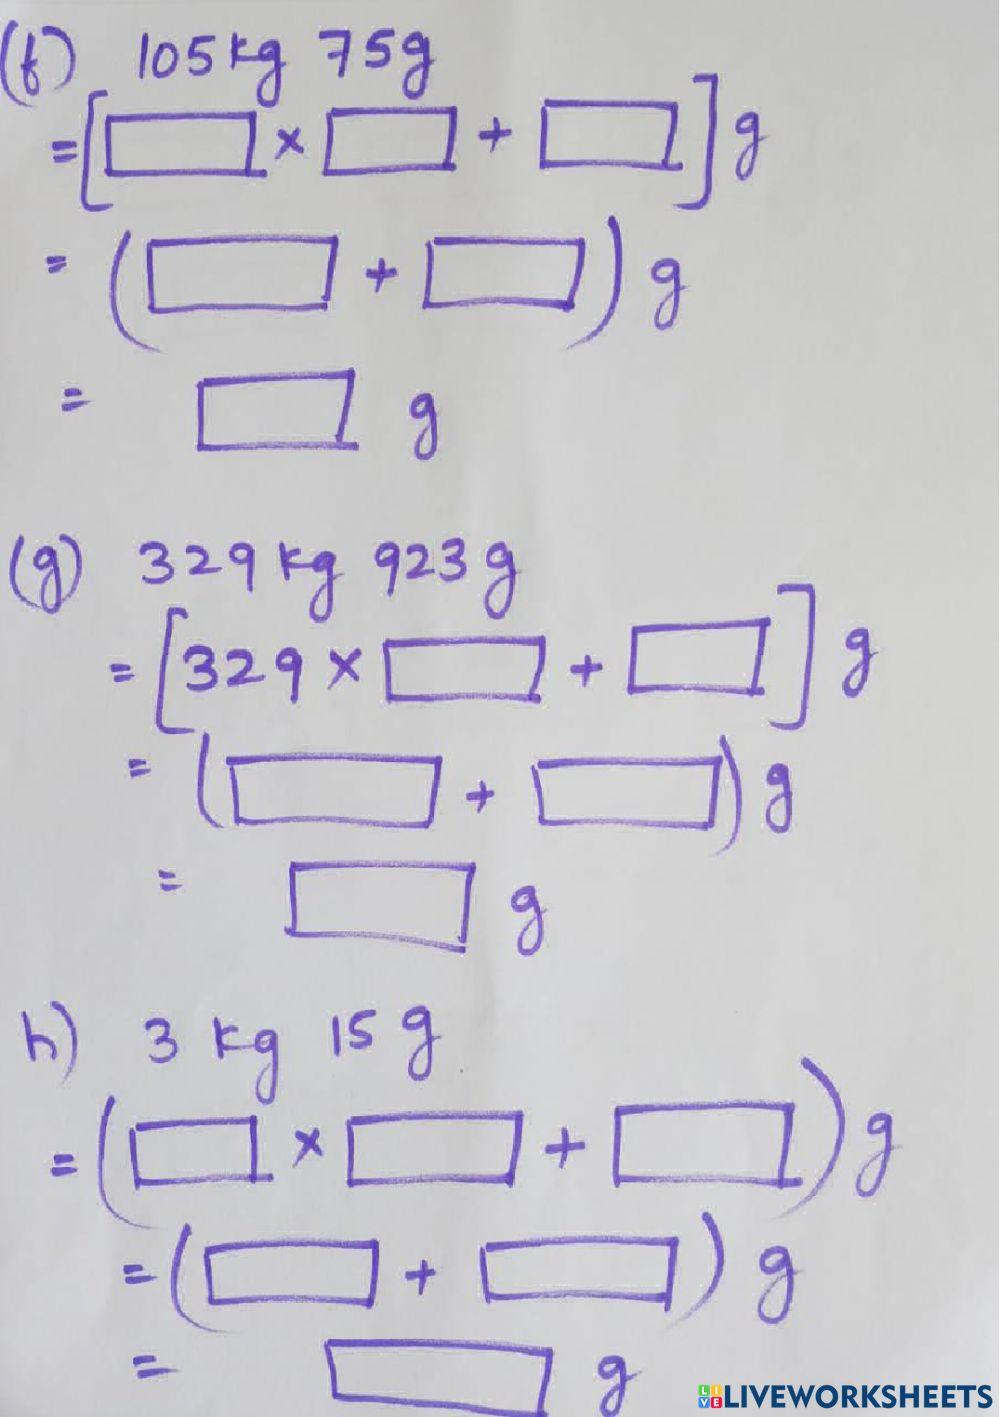 (f) 105 kg 75 g
= [ × + ] g
= ( + ) g
= g
(g) 329 kg 923 g
= [ 329 × + ] g
= ( + ) g
= g
h) 3 kg 15 g
= ( × + ) g
= ( + ) g
= g
LIVEWORKSHEETS